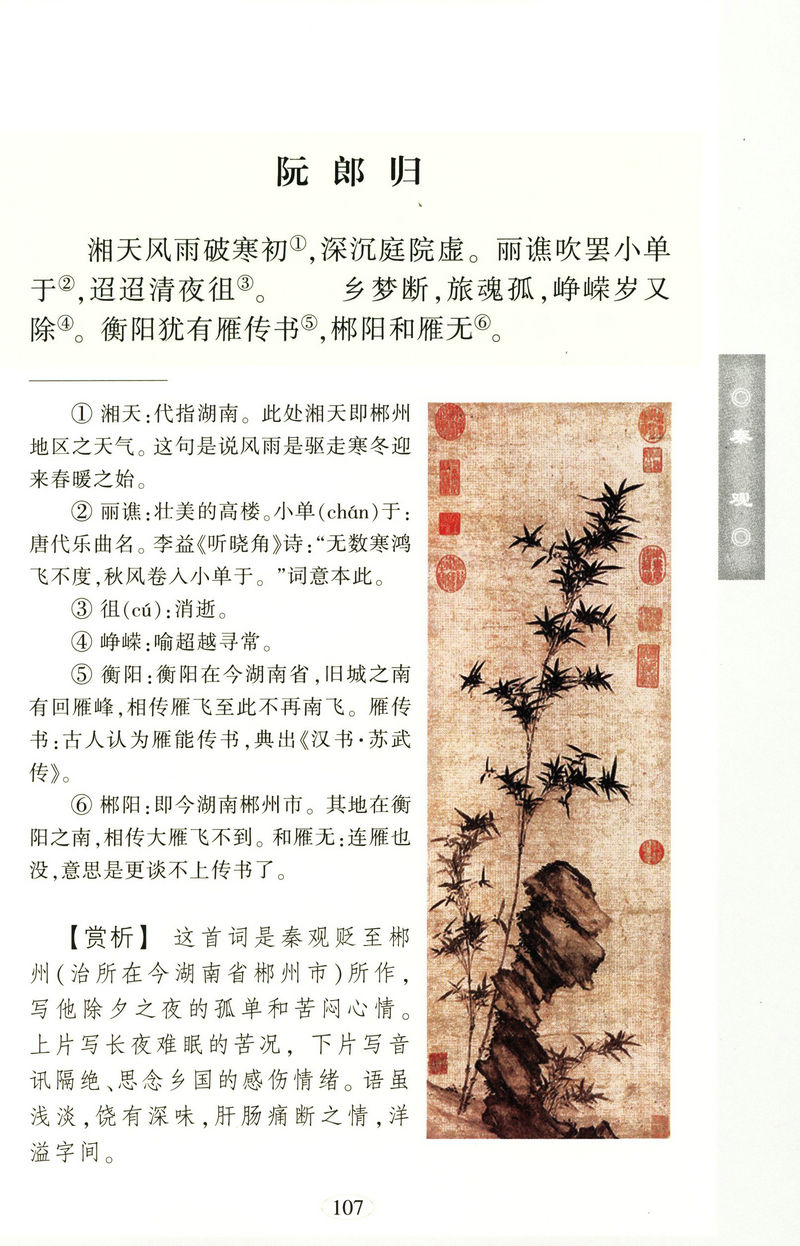 阮郎归
湘天风雨破寒初①,深沉庭院虚。丽谯吹罢小单
于②,迢迢清夜徂③。　　乡梦断,旅魂孤,峥嵘岁又
除④。衡阳犹有雁传书⑤,郴阳和雁无⑥。
① 湘天:代指湖南。此处湘天即郴州
地区之天气。这句是说风雨是驱走寒冬迎
来春暖之始。
② 丽谯:壮美的高楼。小单(chán)于:
唐代乐曲名。李益《听晓角》诗:“无数寒鸿
飞不度,秋风卷入小单于。”词意本此。
③ 徂(cú):消逝。
④ 峥嵘:喻超越寻常。
⑤ 衡阳:衡阳在今湖南省,旧城之南
有回雁峰,相传雁飞至此不再南飞。雁传
书:古人认为雁能传书,典出《汉书·苏武
传》。
⑥ 郴阳:即今湖南郴州市。其地在衡
阳之南,相传大雁飞不到。和雁无:连雁也
没,意思是更谈不上传书了。
【赏析】 这首词是秦观贬至郴
州(治所在今湖南省郴州市)所作,
写他除夕之夜的孤单和苦闷心情。
上片写长夜难眠的苦况,下片写音
讯隔绝、思念乡国的感伤情绪。语虽
浅淡,饶有深味,肝肠痛断之情,洋
溢字间。
◎秦观◎
107